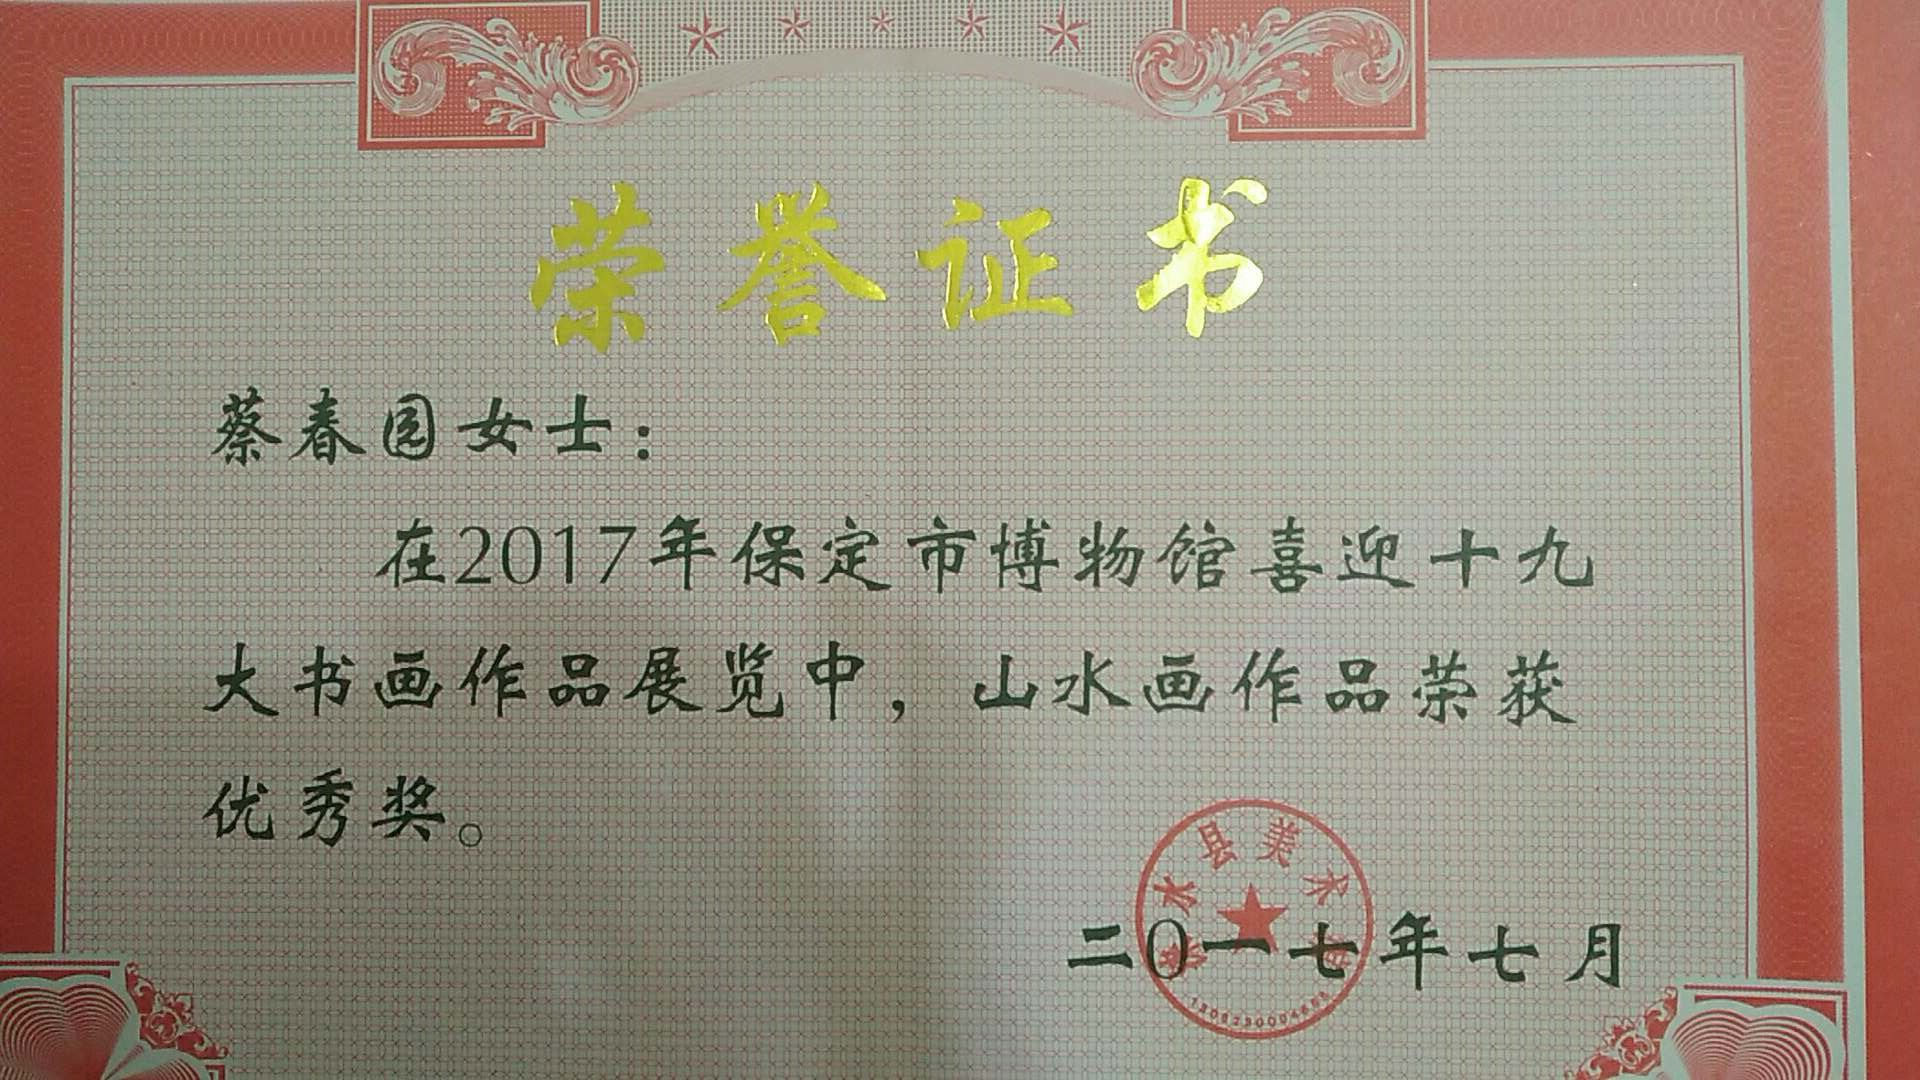 荣誉证书
蔡春园女士：
在2017年保定市博物馆喜迎十九
大书画作品展览中，山水画作品荣获
优秀奖。
水县美术
二0一七年七月